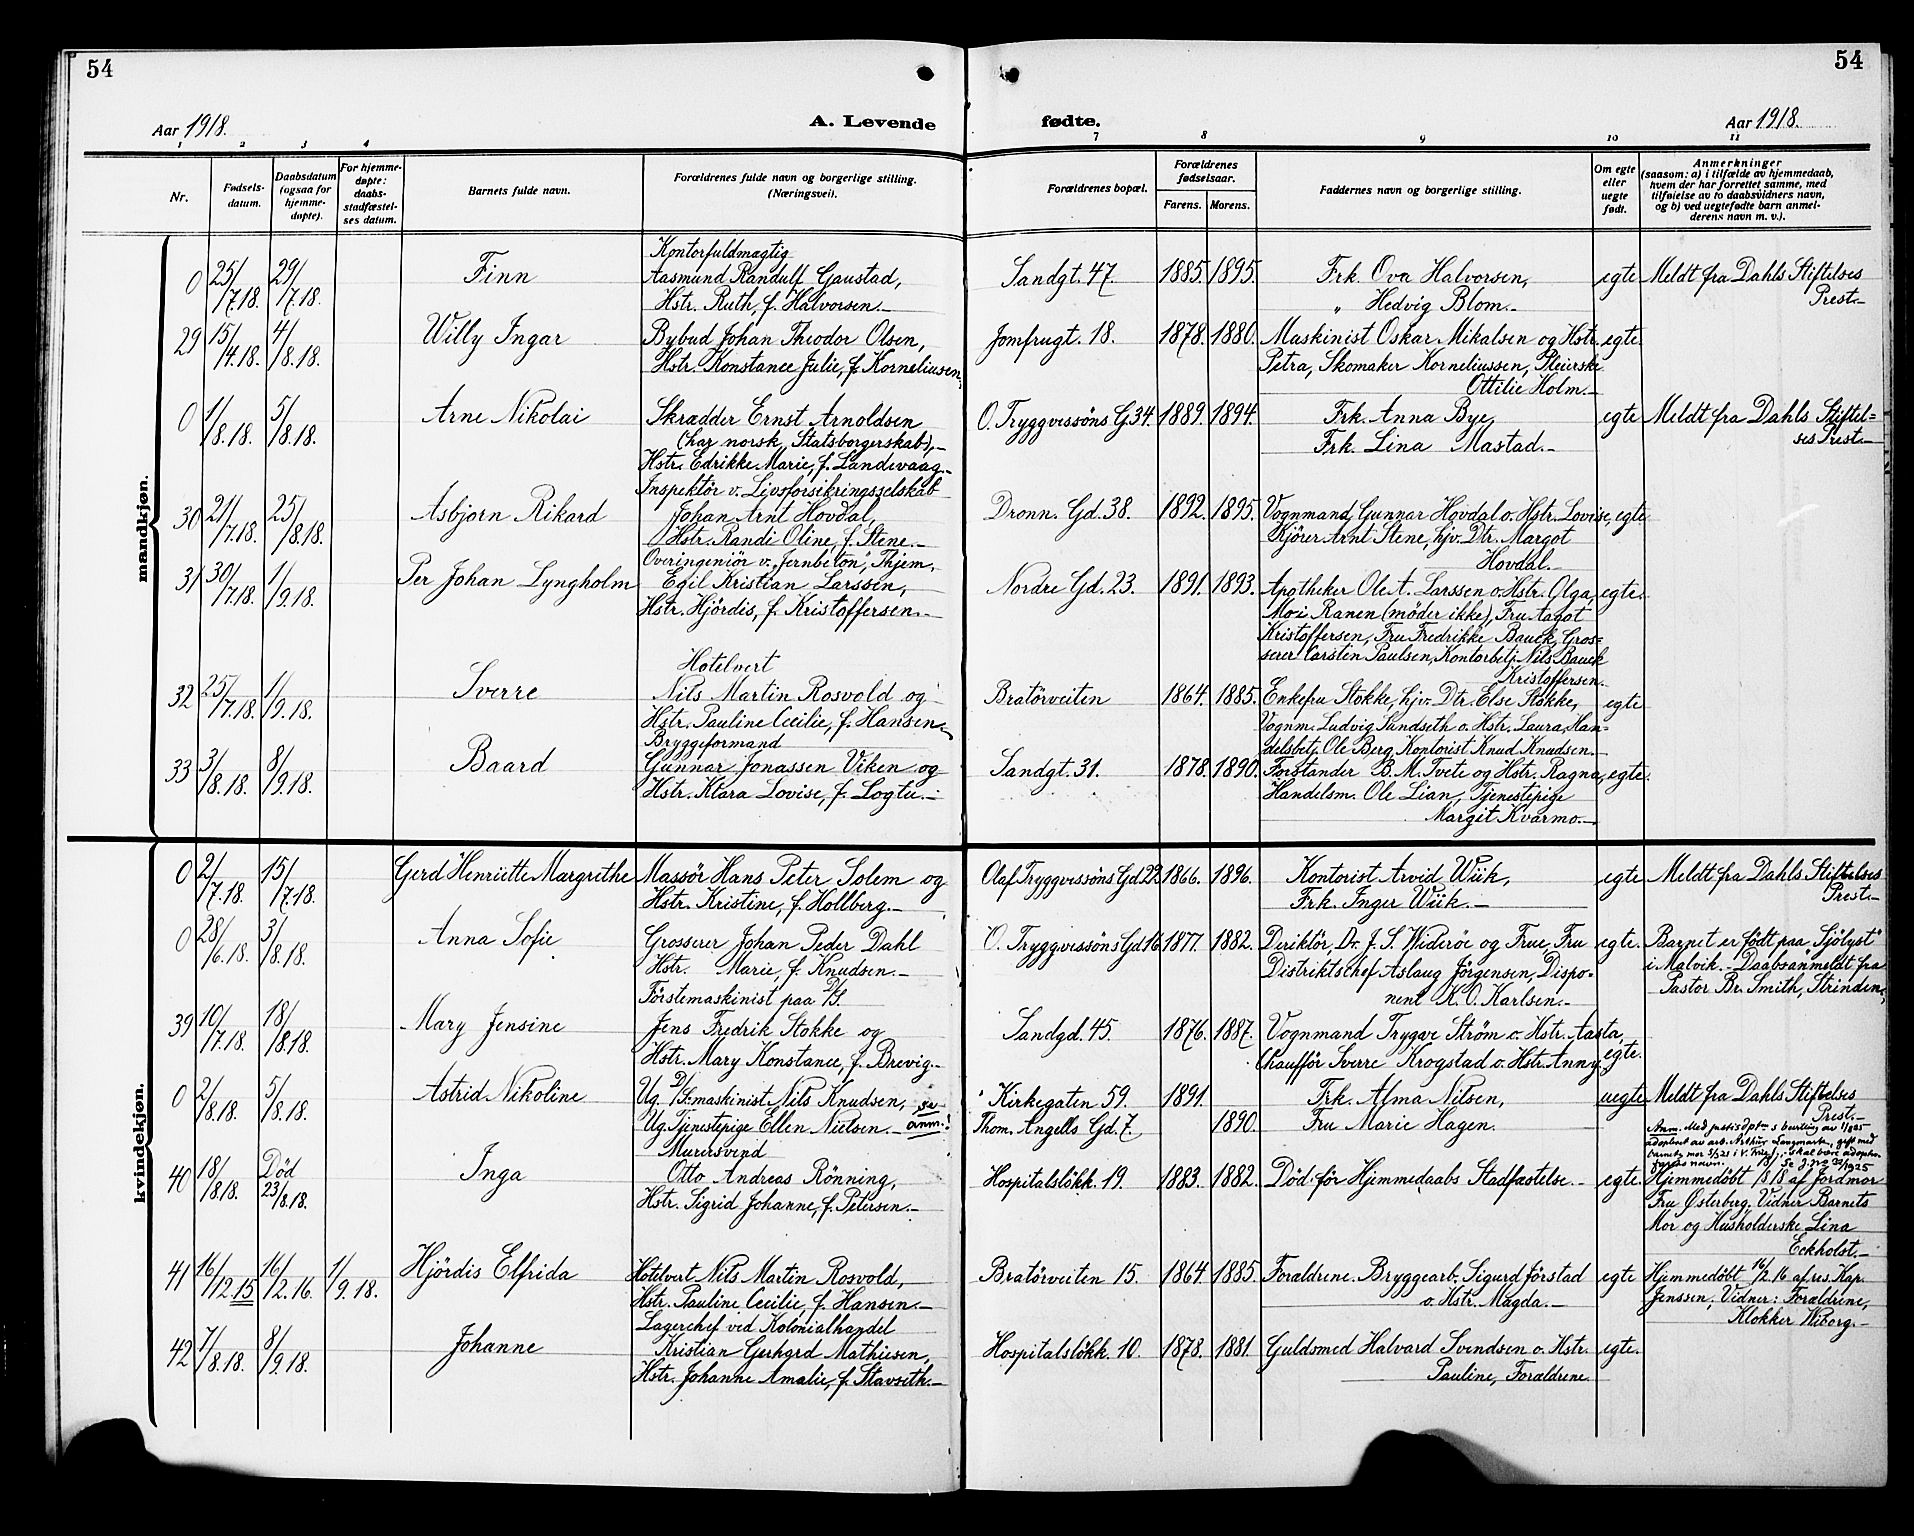 54
54
Aar 1918.
A. Levende
fødte.
Aar 1918.
1 2 3 4 7 8 9 10 11
Nr.
Fødsels-
datum.
Daabsdatum
(ogsaa for
hjemme-
døpte).
For hjemme-
døpte:
daabs-
stadfæstel-
ses datum.
Barnets fulde navn.
Forældrenes fulde navn og borgerlige stilling.
(Næringsvei).
Forældrenes bopæl.
Forældrenes
fødselsaar.
Farens. Morens.
Faddernes navn og borgerlige stilling.
Om egte
eller
uegte
født.
Anmerkninger
(saasom: a) i tilfælde av hjemmedaab,
hvem der har forrettet samme, med
tilføielse av to daabsvidners navn,
og b) ved uegtefødte barn anmel-
derens navn m. v.).
mandkjøn.
0 25/7.18. 29/7.18. Finn
Kontorfuldmægtig
Aasmund Randulf Gaustad,
Hstr. Ruth, f. Halvorsen.-
Sandgt. 47. 1885. 1895.
Frk. Ova Halvorsen,
„ Hedvig Blom.-
egte
Meldt fra Dahls Stiftelses
Prest.-
29 15/4.18. 4/8.18. Willy Ingar
Bybud Johan Theodor Olsen,
Hstr. Konstance Julie, f. Korneliusen,
Jomfrugt. 18. 1878. 1880.
Maskinist Oskar Mikalsen og Hstr.
Petra, Skomaker Korneliussen, Pleierske
Ottilie Holm.-
egte.
0 1/8.18. 5/8.18. Arne Nikolai
Skrædder Ernst Arnoldsen
(har norsk Statsborgerskab),-
Hstr. Edrikke Marie, f. Landevaag.-
O. Tryggvessöns G. 34. 1889. 1894.
Frk. Anna Bye,
Frk. Lina Mastad.-
egte
Meldt fra Dahls Stiftel=
ses Prest.-
30 21/7.18. 25/8.18. Asbjorn Rikard
Inspektör v. Livsforsikringsselskab
Johan Arnt Hovdal,
Hstr. Randi Oline, f. Stene.-
Dronn. Gd. 38. 1892. 1895.
Vognmand Gunnar Hovdal o. Hstr. Lovise,
Kjörer Arnt Stene, hjv. Dtr. Margot
Hovdal.-
egte
31 30/7.18. 1/9.18. Per Johan Lyngholm
Overingeniör v. „Jernbeton“, Thjem,
Egil Kristian Larssen,
Hstr. Hjördis, f. Kristoffersen.-
Nordre Gd. 23. 1891. 1893.
Apotheker Ole A. Larssen o. Hstr. Olga,
Mo i Ranen (möder ikke), Fru Aagot
Kristoffersen, Fru Fredrikke Bauck, Gros=
serer Carsten Paulsen, Kontorbetj. Nils Bauck
Kristoffersen.-
egte.
32 25/7.18. 1/9.18. Sverre
Hotelvert
Nils Martin Rosvold og
Hstr. Pauline Cecilie, f. Hansen.-
Bratörveiten 1864. 1885.
Enkefru Stokke, hjv. Dtr. Else Stokke,
Vognm. Ludvig Sandseth o. Hstr. Laura, Han=
delsbetj. Ole Berg, Kontorist Knud Knudsen.-
egte
33 3/8.18. 8/9.18. Baard
Bryggeformand
Gunnar Jonassen Viken og
Hstr. Klara Lovise, f. Logtu.-
Sandgt. 31. 1878. 1890.
Forstander B. M. Tvete og Hstr. Ragna,
Handelsm. Ole Lian, Tjenestepige
Margit Kvarmo.-
egte.
kvindekjøn.
0 2/7.18. 15/7.18. Gerd Henriette Margrethe
Massör Hans Peter Solem og
Hstr. Kristine, f. Hollberg.-
Olaf Tryggvessöns Gd. 22. 1866. 1896.
Kontorist Arvid Wiik,
Frk. Inger Wiik.-
egte
Meldt fra Dahls Stiftelses
Prest.-
0 28/6.18. 3/8.18. Anna Sofie
Grosserer Johan Peder Dahl
Hstr. Marie, f. Knudsen.-
O. Tryggvessöns Gd. 16 1877. 1882.
Direktör Dr. J. S. Wideröe og Frue, Fru
Distriktschef Aslaug Jörgensen, Dispo-
nent K. O. Karlsen.-
egte.
Barnet er född paa „Sjölyst“
i Malvik.- Daabsanmeldt fra
Pastor Br. Smith, Strinden.-
39 10/7.18. 18/8.18. Mary Jensine
Förstemaskinist paa D/S.
Jens Fredrik Stokke og
Hstr. Mary Konstance, f. Brevig.-
Sandgd. 45. 1876. 1887.
Vognmand Trygve Ström o. Hstr. Aasta,
Chaufför Sverre Krogstad o. Hstr. Anny.
egte.
0 2/8.18. 5/8.18. Astrid Nikoline
Ug. D/S.maskinist Nils Knudsen,
Ug. Tjenestepige Ellen Nielsen.- se anm.!
Kirkegaten 59. 1891.
Thom. Angells Gd. 7. 1890.
Frk. Alma Nilsen,
Fru Marie Hagen.
uegte
Meldt fra Dahls Stiftelses
Prest.-
40 18/8.18. Död 23/8.18. Inga
Murersvend
Otto Andreas Rönning,
Hstr. Sigrid Johanne, f. Petersen.-
Hospitalslökk. 19. 1883. 1882.
Död för Hjemmedaabs Stadfæstelse.-
egte.
Hjemmedöbt 18/8 18 af Jordmor
Fru Østerberg. Vidner Barnets
Mor og Husholderske Lina
Eckholst.-
41 16/12.15 16/2.16. 1/9.18. Hjördis Elfrida
Hotelvert Nils Martin Rosvold,
Hstr. Pauline Cecilie, f. Hansen.-
Bratörveiten 15. 1864. 1885.
Forældrene. Bryggearb. Sigurd Förstad
o. Hstr. Magda.-
egte
Hjemmedöbt 16/2.16 af res. Kap.
Jenssen, Vidner: Forældrene,
Klokker Wiborg.-
42 7/8.18. 8/9.18. Johanne
Lagerchef ved Kolonialhandel
Kristian Gerhard Mathiesen,
Hstr. Johanne Amalie, f. Stavseth.-
Hospitalslökk. 10. 1878. 1881.
Guldsmed Halvard Svendsen o. Hstr.
Pauline, Forældrene
egte.